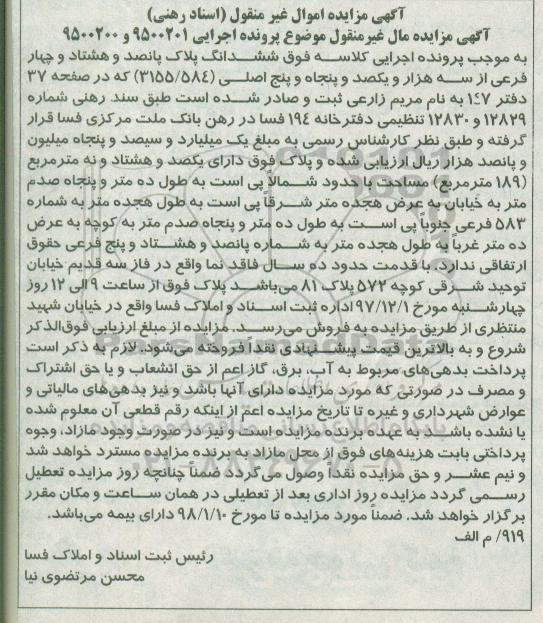 آگهی مزایده اموال غیر منقول (اسناد رهنی)
آگهی مزایده مال غیرمنقول موضوع پرونده اجرایی ۹۵۰۰۲۰۱ و ۹۵۰۰۲۰۰
به موجب پرونده اجرایی کلاسه فوق ششدانگ پلاک پانصد و هشتاد و چهار
فرعی از سه هزار و یکصد و پنجاه و پنج اصلی (۳۱۵۵/۵۸۴) که در صفحه ۳۷
دفتر ۱٤۷ به نام مریم زارعی ثبت و صادر شده است طبق سند رهنی شماره
۱۲۸۲۹ و ۱۲۸۳۰ تنظیمی دفترخانه ۱۹٤ فسا در رهن بانک ملت مرکزی فسا قرار
گرفته و طبق نظر کارشناس رسمی به مبلغ یک میلیارد و سیصد و پنجاه میلیون
و پانصد هزار ریال ارزیابی شده و پلاک فوق دارای یکصد و هشتاد و نه مترمربع
(۱۸۹ مترمربع) مساحت با حدود شمالاً پی است به طول ده متر و پنجاه صدم
متر به خیابان به عرض هجده متر شرقاً پی است به طول هجده متر به شماره
۵۸۳ فرعی جنوباً پی است به طول ده متر و پنجاه صدم متر به کوچه به عرض
ده متر غرباً به طول هجده متر به شماره پانصد و هشتاد و پنج فرعی حقوق
ارتفاقی ندارد. با قدمت حدود ده سال فاقد نما واقع در فاز سه قدیم خیابان
توحید شرقی کوچه ۵۷۲ پلاک ۸۱ می‌باشد پلاک فوق از ساعت ۹ الی ۱۲ روز
چهارشنبه مورخ ۹۷/۱۲/۱ اداره ثبت اسناد و املاک فسا واقع در خیابان شهید
منتظری از طریق مزایده به فروش می‌رسد. مزایده از مبلغ ارزیابی فوق‌الذکر
شروع و به بالاترین قیمت پیشنهادی نقداً فروخته می‌شود. لازم به ذکر است
پرداخت بدهی‌های مربوط به آب، برق، گاز اعم از حق انشعاب و یا حق اشتراک
و مصرف در صورتی که مورد مزایده دارای آنها باشد و نیز بدهی‌های مالیاتی و
عوارض شهرداری و غیره تا تاریخ مزایده اعم از اینکه رقم قطعی آن معلوم شده
یا نشده باشد به عهده برنده مزایده است و نیز در صورت وجود مازاد، وجوه
پرداختی بابت هزینه‌های فوق از محل مازاد به برنده مزایده مسترد خواهد شد
و نیم عشر و حق مزایده نقداً وصول می‌گردد ضمناً چنانچه روز مزایده تعطیل
رسمی گردد مزایده روز اداری بعد از تعطیلی در همان ساعت و مکان مقرر
برگزار خواهد شد. ضمناً مورد مزایده تا مورخ ۹۸/۱/۱۰ دارای بیمه می‌باشد.
۹۱۹/ م الف
رئیس ثبت اسناد و املاک فسا
محسن مرتضوی نیا